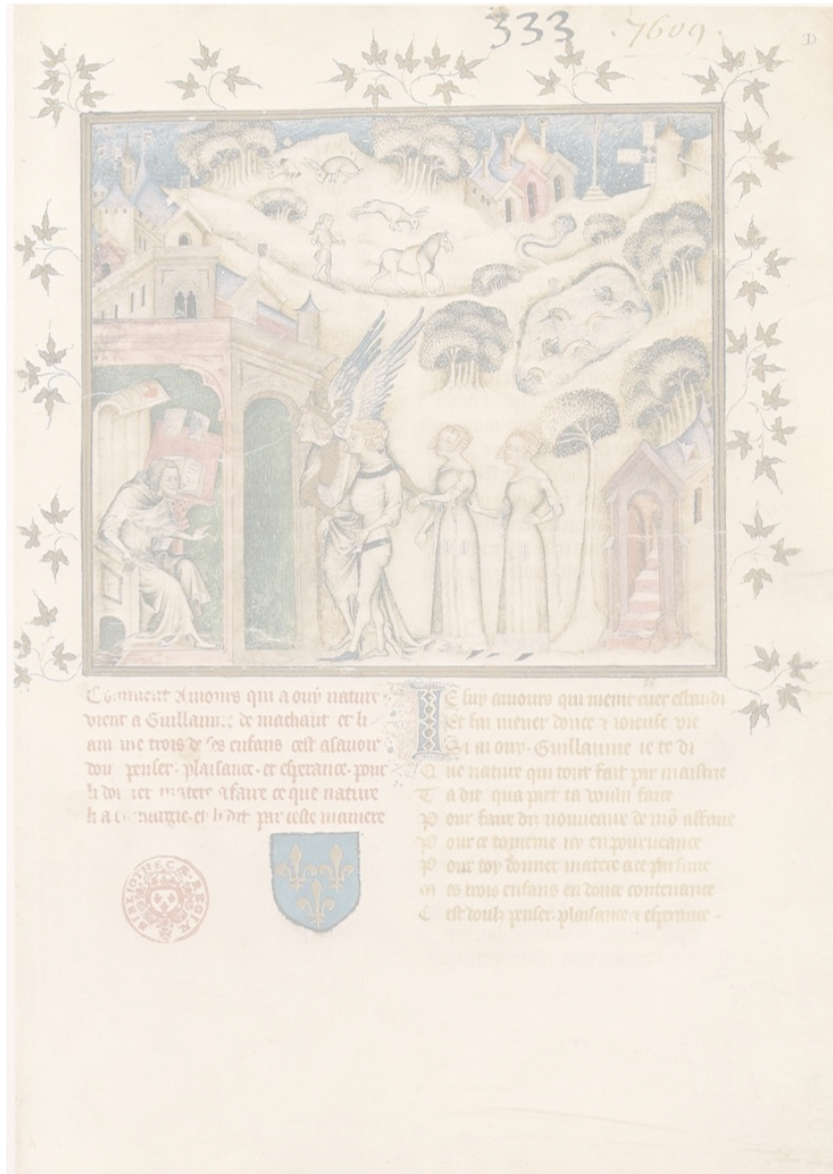 333 7609 D
Comment Amours qui a ouy nature
vient a Guillaume de machaut et li
am ine trois de ses enfans cest asavoir
dou penser. plaisance. et esperance. pour
li donner matere a faire ce que nature
li a en chargie. et li dit par ceste maniere
BIBLIOTHECÆ REGIÆ
Ie suy amours qui maint cuer esbaudi
Et fai mener douce & ioieuse vie
Si ai ouy. Guillaume ie te di
Que nature qui tout fait par maistrie
Ta dit qua part ta voulu faire
Pour faire diz nouveaux de mõ affaire
Pour ce tameine icy en pourveance
Pour toy donner matere a ce parfaire
Mes trois enfans en douce contenance
Cest doulz penser. plaisance & esperance